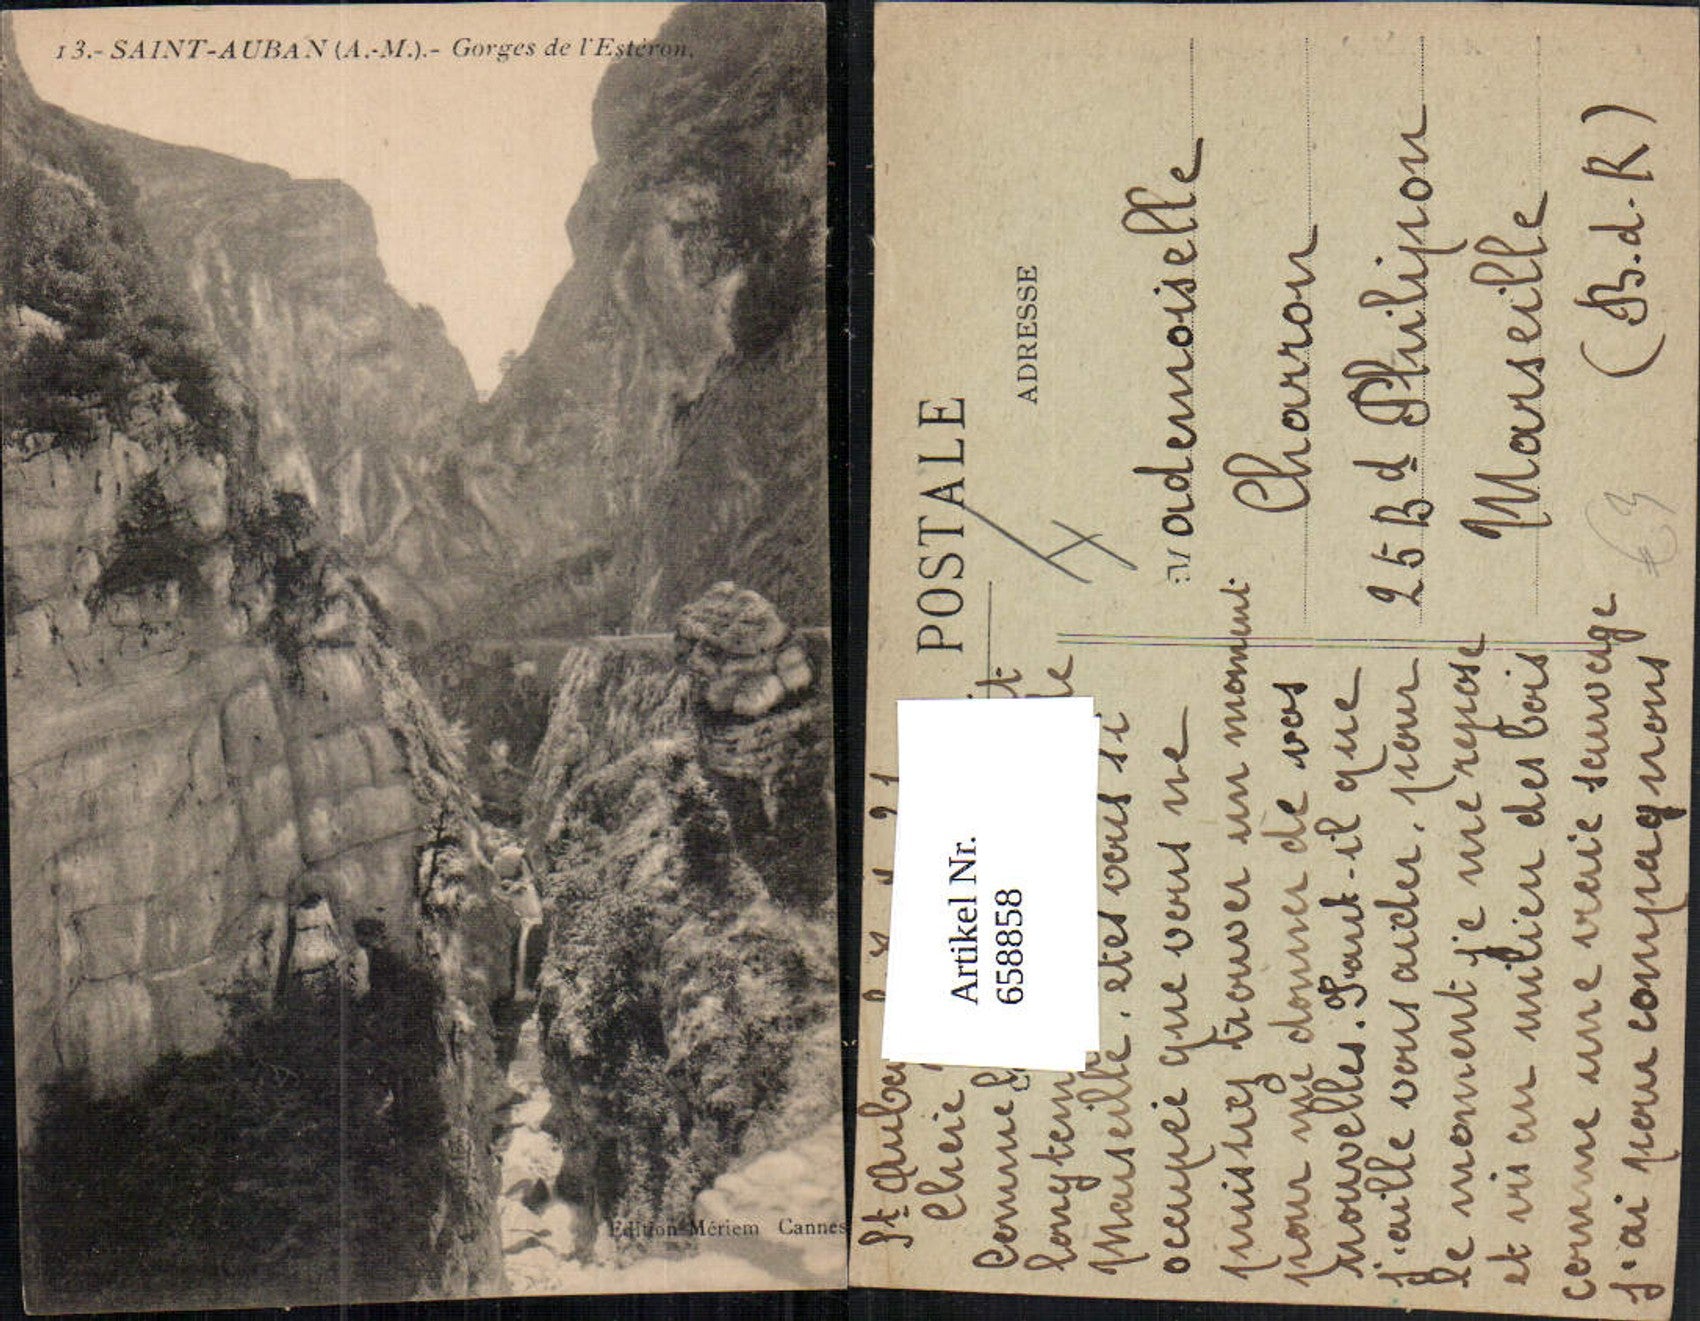 13.- SAINT-AUBAN (A.-M.).- Gorges de l'Estéron.
Edition Mériem Cannes
POSTALE
ADRESSE
Mademoiselle
Charron
25 Bd Philipon
Marseille
(B.d.R)
€3
Artikel Nr.
658858
St Auban 21
Cheie
Comme
Marseille, etes vous si
occupée que vous ne
puissiez trouver un moment
pour me donner de vos
nouvelles. Faut-il que
j'aille vous aider, pour
le moment je me repose
et vis au milieu des bois
comme une vraie sauvage
j'ai pour compagnons